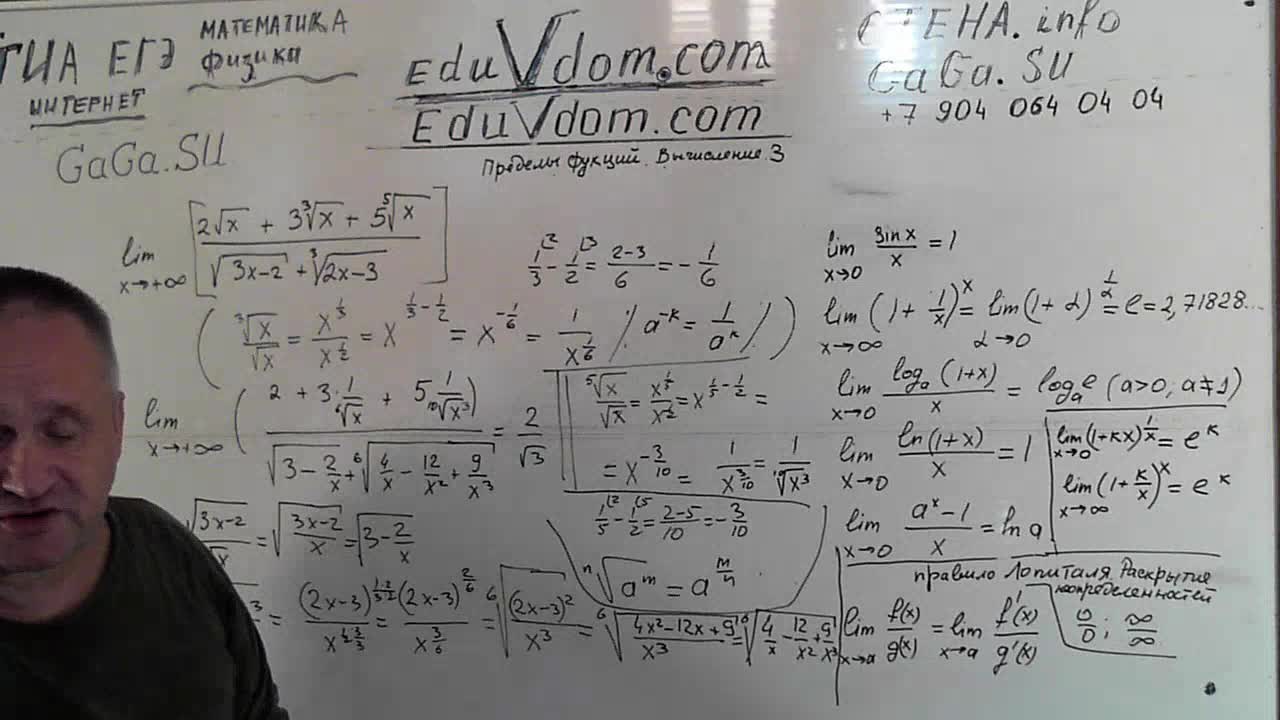 ГИА ЕГЭ МАТЕМАТИКА
физики
ИНТЕРНЕТ
GaGa.SU
EduVdom.com
EduVdom.com
Пределы фукций. Вычисление 3
СТЕНА.info
GaGa.SU
+7 904 064 04 04
lim x→+∞ [(2√x + 3∛x + 5⁵√x) / (√(3x-2) + ∛(2x-3))]
1/3 - 1/2 = (2-3)/6 = -1/6
( ∛x/√x = x^(1/3)/x^(1/2) = x^(1/3-1/2) = x^(-1/6) = 1/x^(1/6) / a^(-к) = 1/a^к / )
lim x→+∞ (2 + 3·1/⁶√x + 5 1/¹⁰√x³) / (√(3-2/x) + ⁶√(4/x - 12/x² + 9/x³)) = 2/√3
⁵√x/√x = x^(1/5)/x^(1/2) = x^(1/5-1/2) =
= x^(-3/10) = 1/x^(3/10) = 1/¹⁰√x³
1/5 - 1/2 = (2-5)/10 = -3/10
ⁿ√a^m = a^(m/n)
√(3x-2)/√x = √((3x-2)/x) = √(3-2/x)
= (2x-3)^(1/3·2/2)/x^(1/2·3/3) = (2x-3)^(2/6)/x^(3/6) = ⁶√((2x-3)²/x³) = ⁶√((4x²-12x+9)/x³) = ⁶√(4/x - 12/x² + 9/x³)
lim x→0 sin x/x = 1
lim x→∞ (1 + 1/x)^x = lim α→0 (1+α)^(1/α) = e = 2,71828...
lim x→0 log_a(1+x)/x = log_a e (a>0, a≠1)
lim x→0 ln(1+x)/x = 1
lim x→0 (1+кx)^(1/x) = e^к
lim x→∞ (1+к/x)^x = e^к
lim x→0 (a^x-1)/x = ln a
правило Лопиталя. Раскрытие
неопределенностей
lim x→a f(x)/g(x) = lim x→a f'(x)/g'(x)
0/0 ; ∞/∞